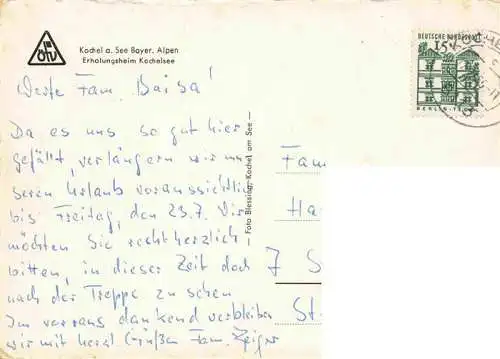 ÖTV
Kochel a. See Bayer. Alpen
Erholungsheim Kochelsee
DEUTSCHE BUNDESPOST
15
BERLIN-TE
KOCHEL
Werte Fam. Baisa!
Da es uns so gut hier
gefällt, verlängern wir un
seren Urlaub voraussichtlich
bis Freitag, den 23.7. Wir
möchten Sie recht herzlich
bitten, in dieser Zeit doch
nach der Treppe zu sehen
Im voraus dankend verbleiben
wir mit herzl Grüßen Fam. Zeiger
Foto Blessing, Kochel am See
Fam
Ha
7 S
St